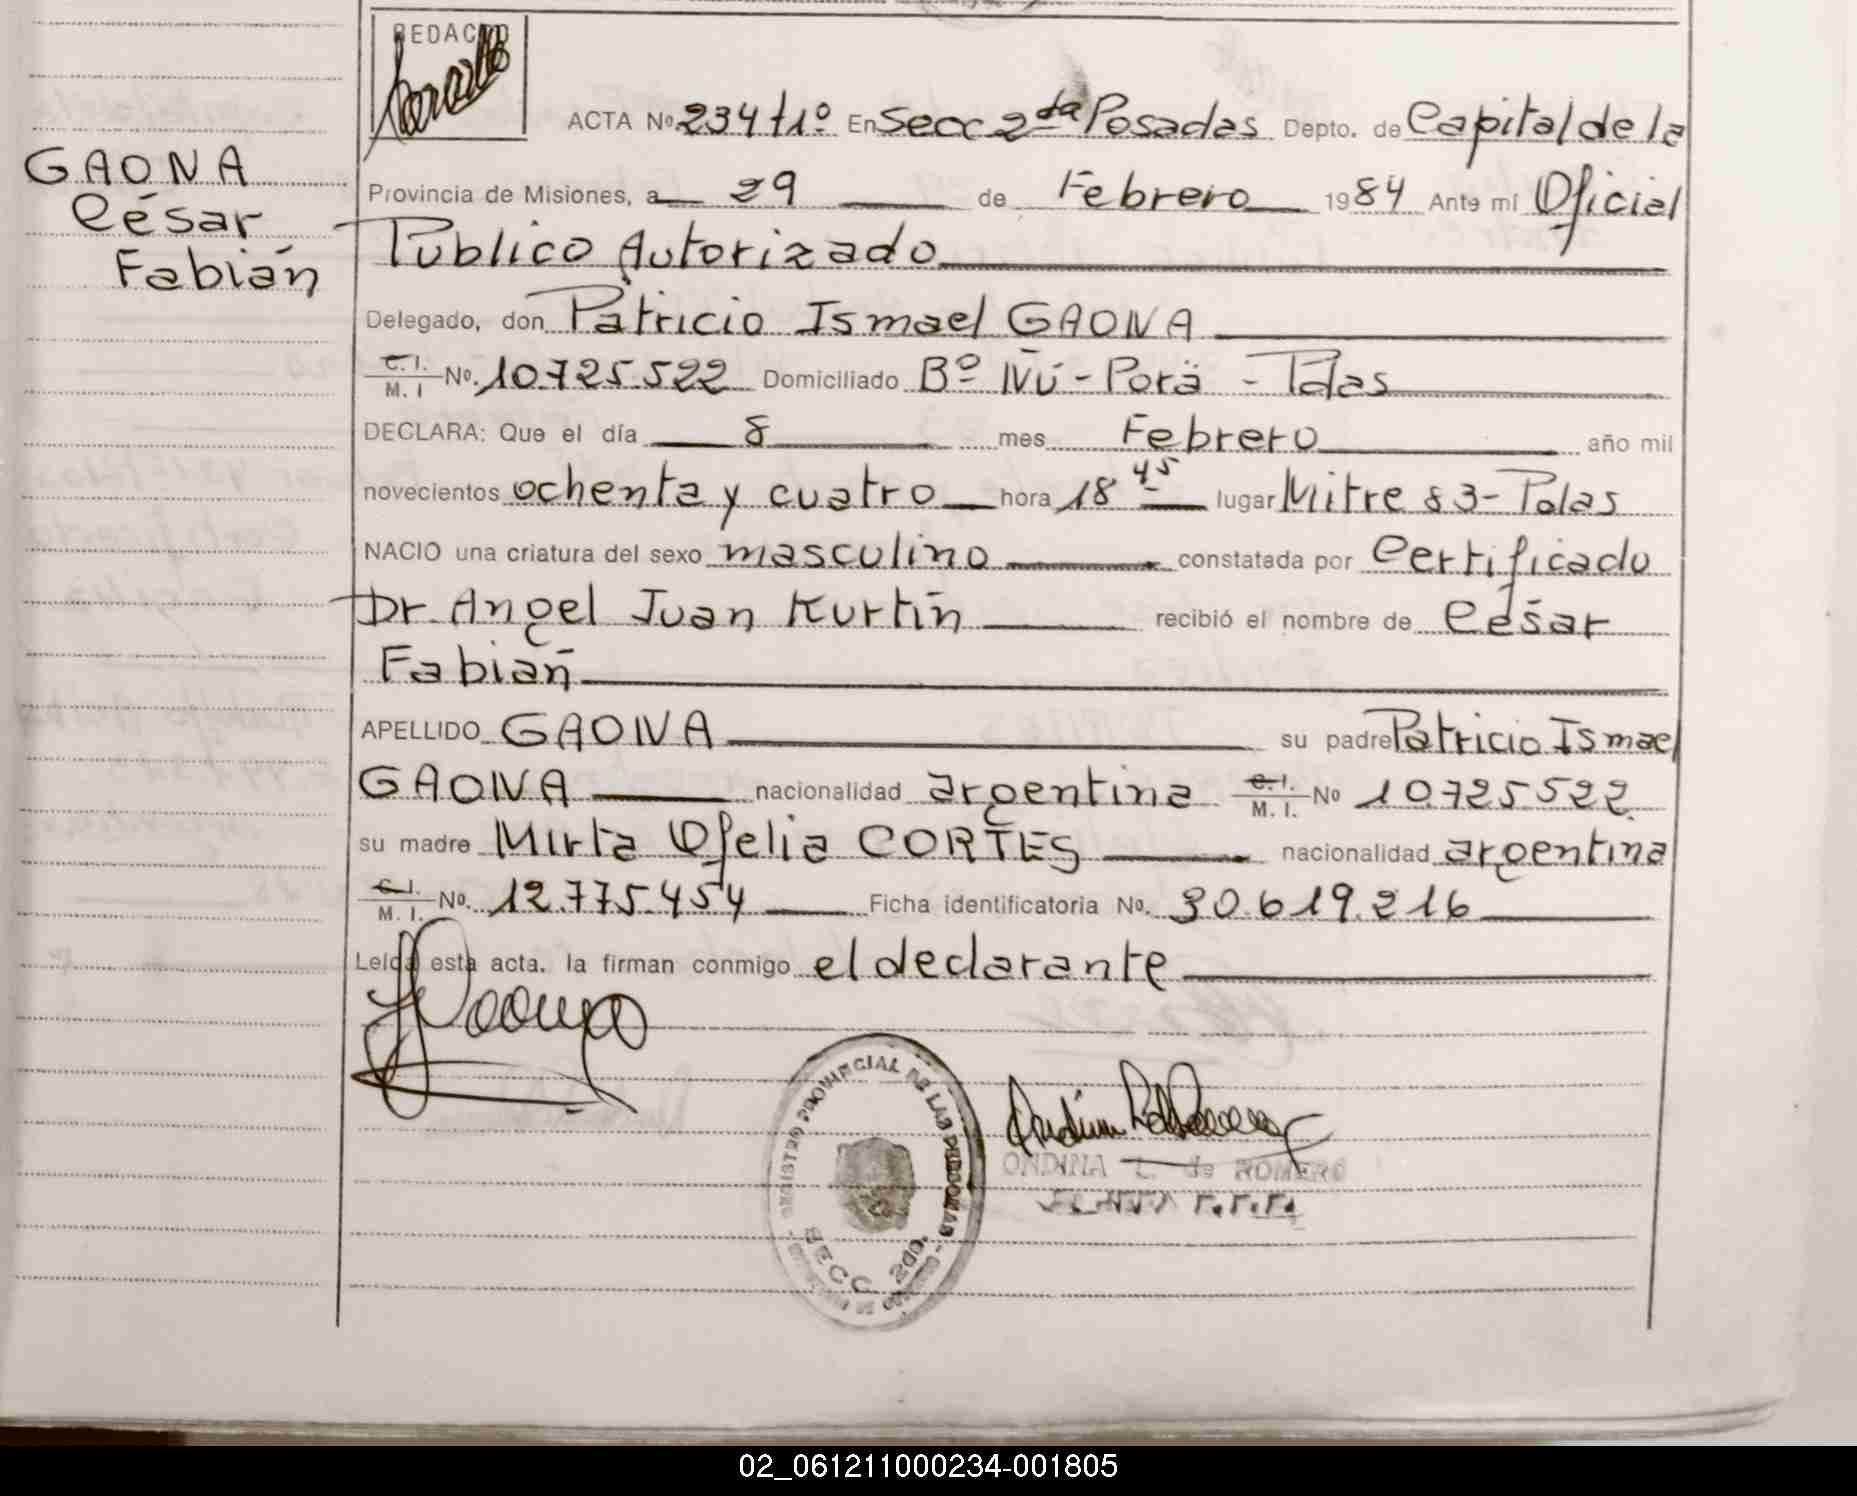 REDACTO
ACTA Nº 234 tº1º En Secc 2da Posadas Depto. de Capital de la
GAONA
César
Fabián
Provincia de Misiones, a 29 de Febrero 1984 Ante mí Oficial
Publico Autorizado
Delegado, don Patricio Ismael GAONA
C. I. M. I Nº. 10.725.522 Domiciliado Bº Ñú-Porá - Pdas
DECLARA: Que el día 8 mes Febrero año mil
novecientos ochenta y cuatro hora 18 45 lugar Mitre 83 - Pdas
NACIO una criatura del sexo masculino constatada por Certificado
Dr. Angel Juan Kurtin recibió el nombre de César
Fabián
APELLIDO GAONA su padre Patricio Ismael
GAONA nacionalidad argentina C. I. M. I. Nº 10.725.522
su madre Mirta Ofelia CORTES nacionalidad argentina
C. I. M. I. Nº. 12.775.454 Ficha identificatoria Nº. 30.619.216
Leída esta acta, la firman conmigo el declarante
REGISTRO PROVINCIAL DE LAS PERSONAS
SECC 2da.
ONDINA L. de ROMERO
02_061211000234-001805